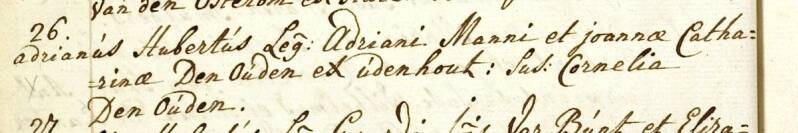 Van den
26.
Adrianús Hubertús Leg̃: Adriani Manni et joannæ Catha=
=rinæ Den Oúden ex údenhout: Sus: Cornelia
Den Oúden.
27. et Eliza=